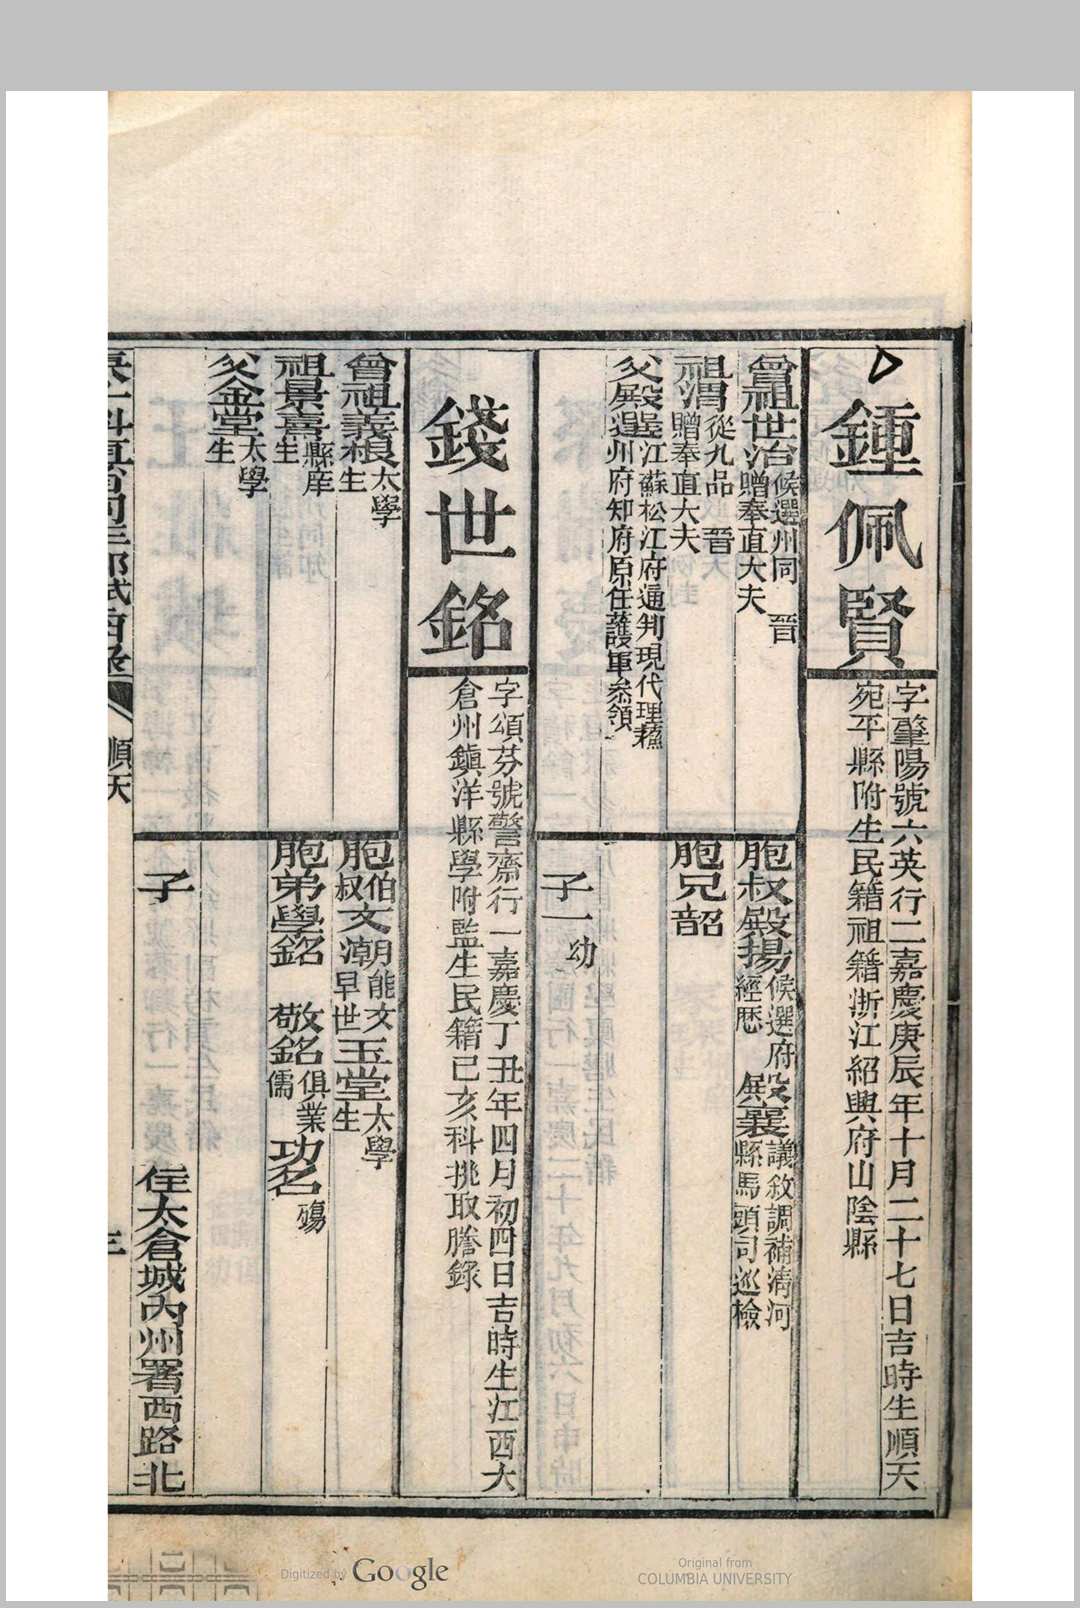 鍾佩賢
字肇陽號六英行二嘉慶庚辰年十月二十七日吉時生順天
宛平縣附生民籍祖籍浙江紹興府山陰縣
曾祖世治候選州同 晉
贈奉直大夫
祖渭從九品 晉
贈奉直大夫
父殿選江蘇松江府通判現代理蘇
州府知府原任護軍叅領
胞叔殿揚候選府
經歷
殿襄議敘調補清河
縣馬頭司巡檢
胞兄韶
子一幼
錢世銘
字頌芬號警齋行一嘉慶丁丑年四月初四日吉時生江西大
倉州鎮洋縣學附監生民籍己亥科挑取謄錄
曾祖義槙太學
生
祖景喜縣庠
生
父金堂太學
生
胞伯叔文潮能文
早世
玉堂太學
生
胞弟學銘 敬銘俱業
儒
功名殤
子
住太倉城內州署西路北
順天
三
Digitized by Google
Original from
COLUMBIA UNIVERSITY